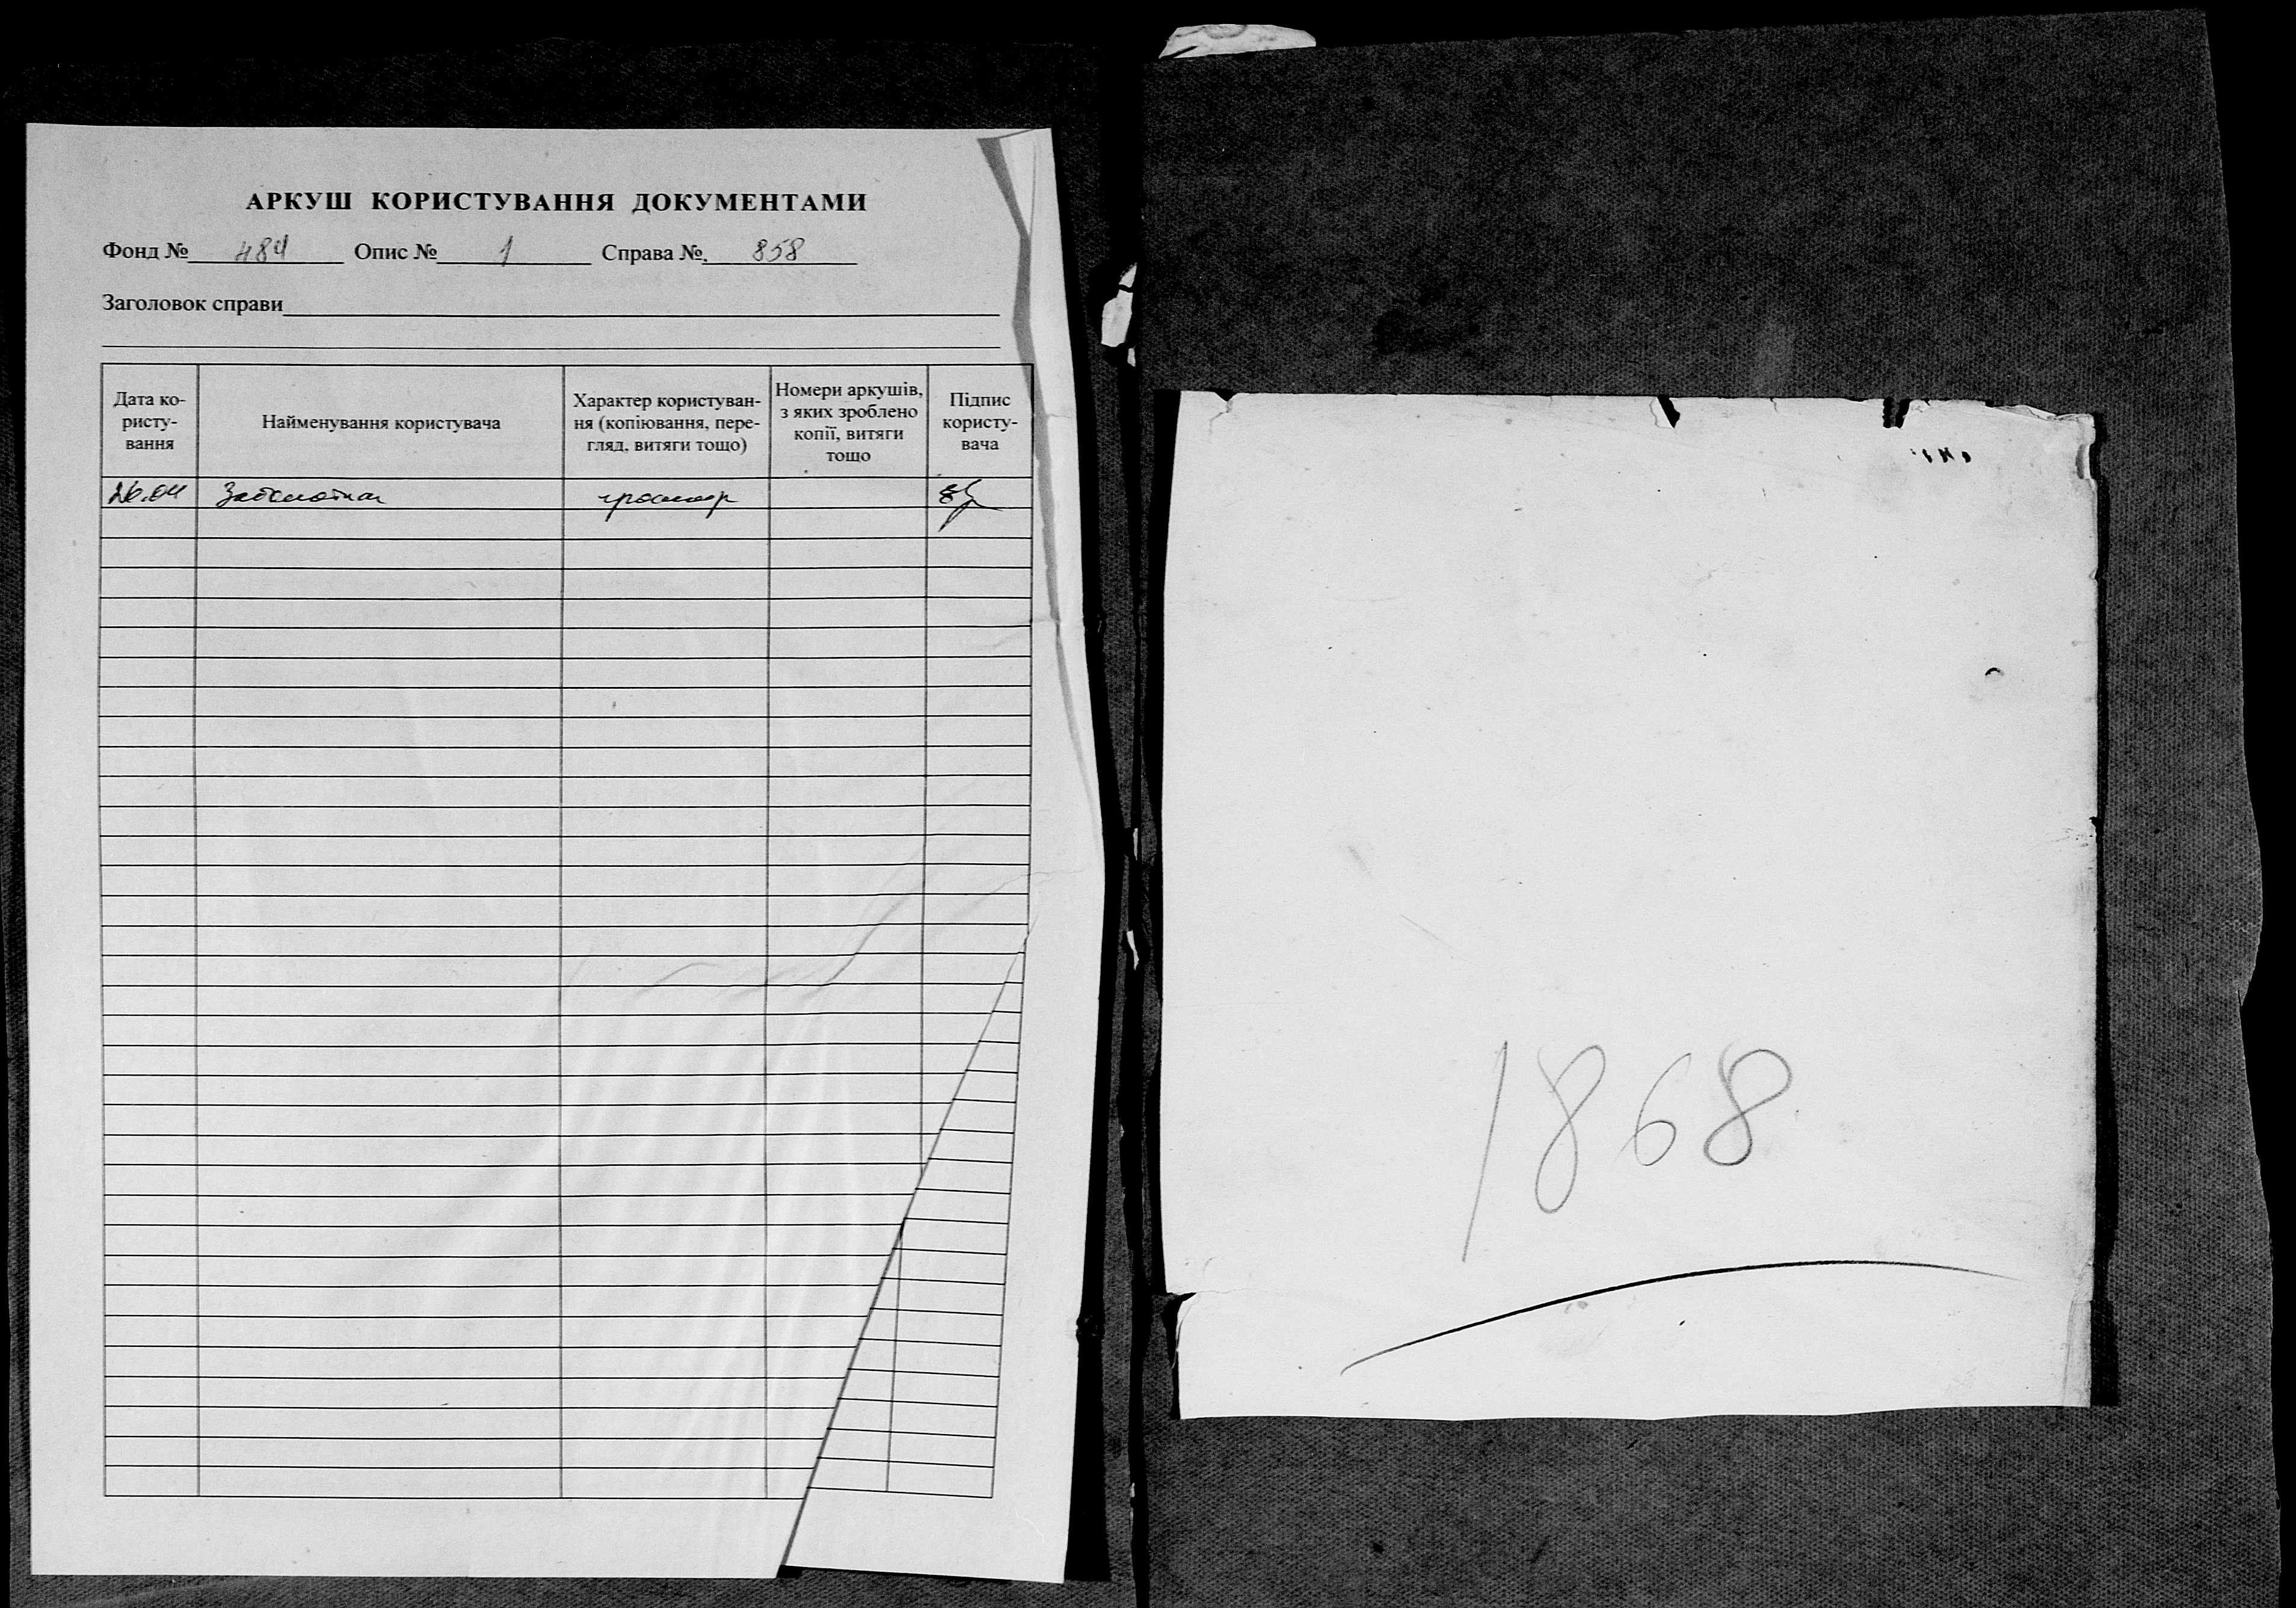 АРКУШ КОРИСТУВАННЯ ДОКУМЕНТАМИ
Фонд № 484 Опис № 1 Справа № 858
Заголовок справи
Дата ко-
ристу-
вання
Найменування користувача
Характер користуван-
ня (копіювання, пере-
гляд, витяги тощо)
Номери аркушів,
з яких зроблено
копії, витяги
тощо
Підпис
користу-
вача
26.04 Заболотна
1868